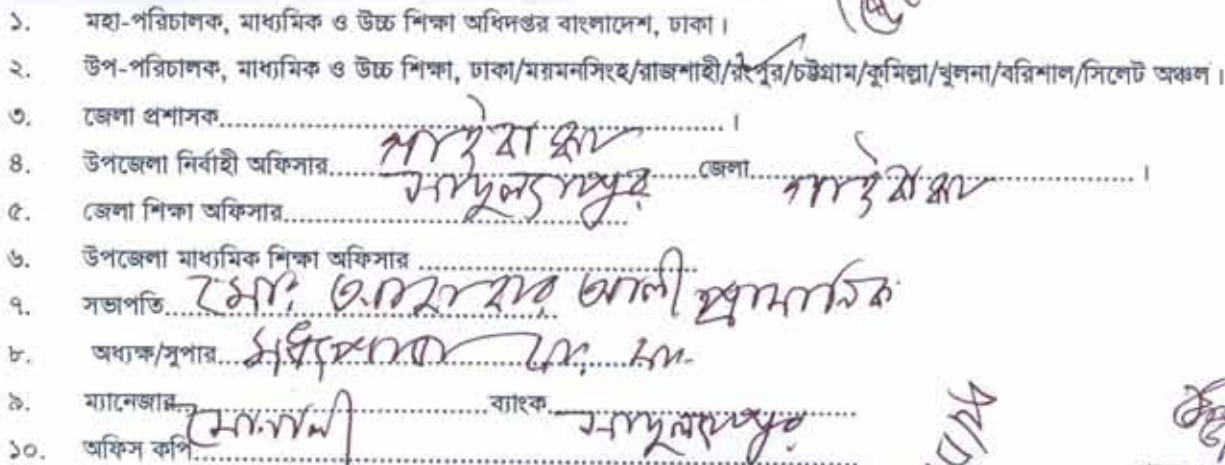 ১. মহা-পরিচালক, মাধ্যমিক ও উচ্চ শিক্ষা অধিদপ্তর বাংলাদেশ, ঢাকা।
২. উপ-পরিচালক, মাধ্যমিক ও উচ্চ শিক্ষা, ঢাকা/ময়মনসিংহ/রাজশাহী/রংপুর/চট্টগ্রাম/কুমিল্লা/খুলনা/বরিশাল/সিলেট অঞ্চল।
৩. জেলা প্রশাসক.................... গাইবান্ধা ....................।
৪. উপজেলা নির্বাহী অফিসার.................... সাদুল্যাপুর ....................জেলা.................... গাইবান্ধা ....................।
৫. জেলা শিক্ষা অফিসার....................
৬. উপজেলা মাধ্যমিক শিক্ষা অফিসার ....................
৭. সভাপতি.................... মো: আলী প্রামানিক
৮. অধ্যক্ষ/সুপার....................
৯. ম্যানেজার.................... সোনালী ....................ব্যাংক.................... সাদুল্যাপুর
১০. অফিস কপি....................